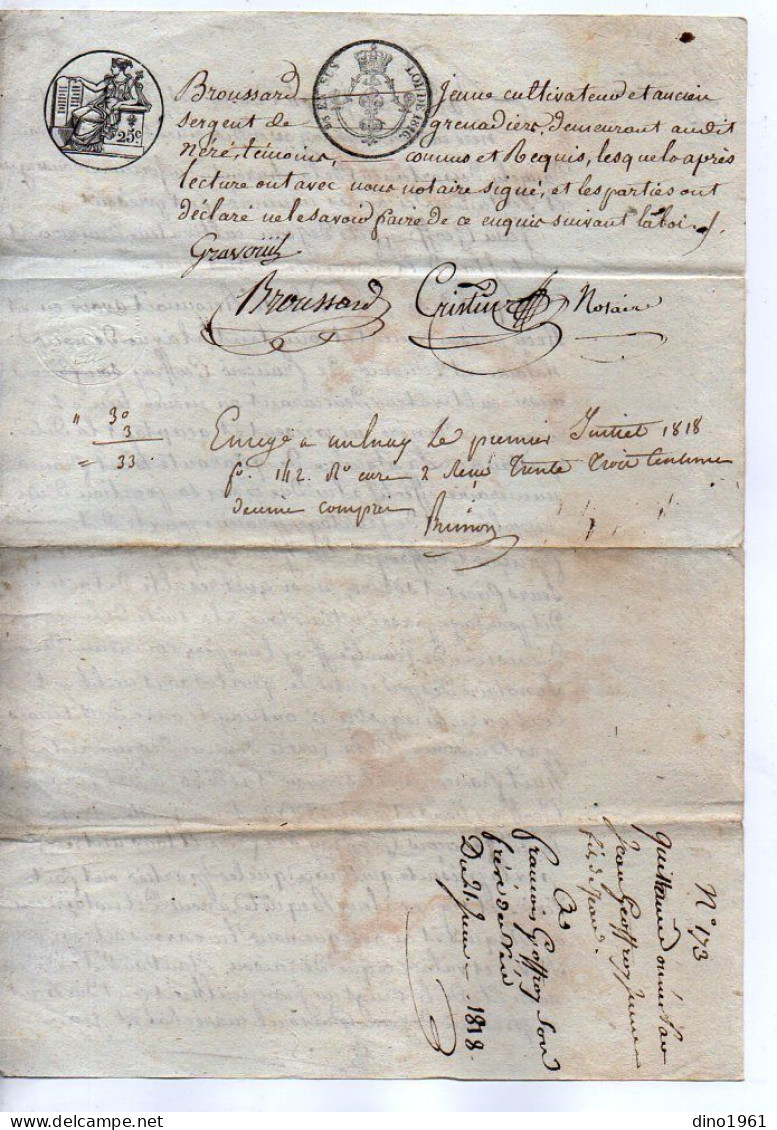 25c
EN SUS LOI DE 1816
Broussard jeune cultivateur et ancien
sergent de grenadiers, demeurant audit
Neré, témoins, connus et Requis, lesquels après
lecture ont avec nous notaire signé, et les parties ont
déclaré ne le savoir faire de ce enquis suivant la loi
Gravouil
Broussard Notaire
" 30
3
= 33.
à aulnay le premier Juillet 1818
fo. 142. Ro case 2 Reçu Trente Trois Centimes
compris
No 173
quittance donnée par
Jean Geoffroy jeune
fils de Jean.
A
François Geoffroy son
frère de Néré
Du 21. Juin 1818.
delcampe.net
dino1961